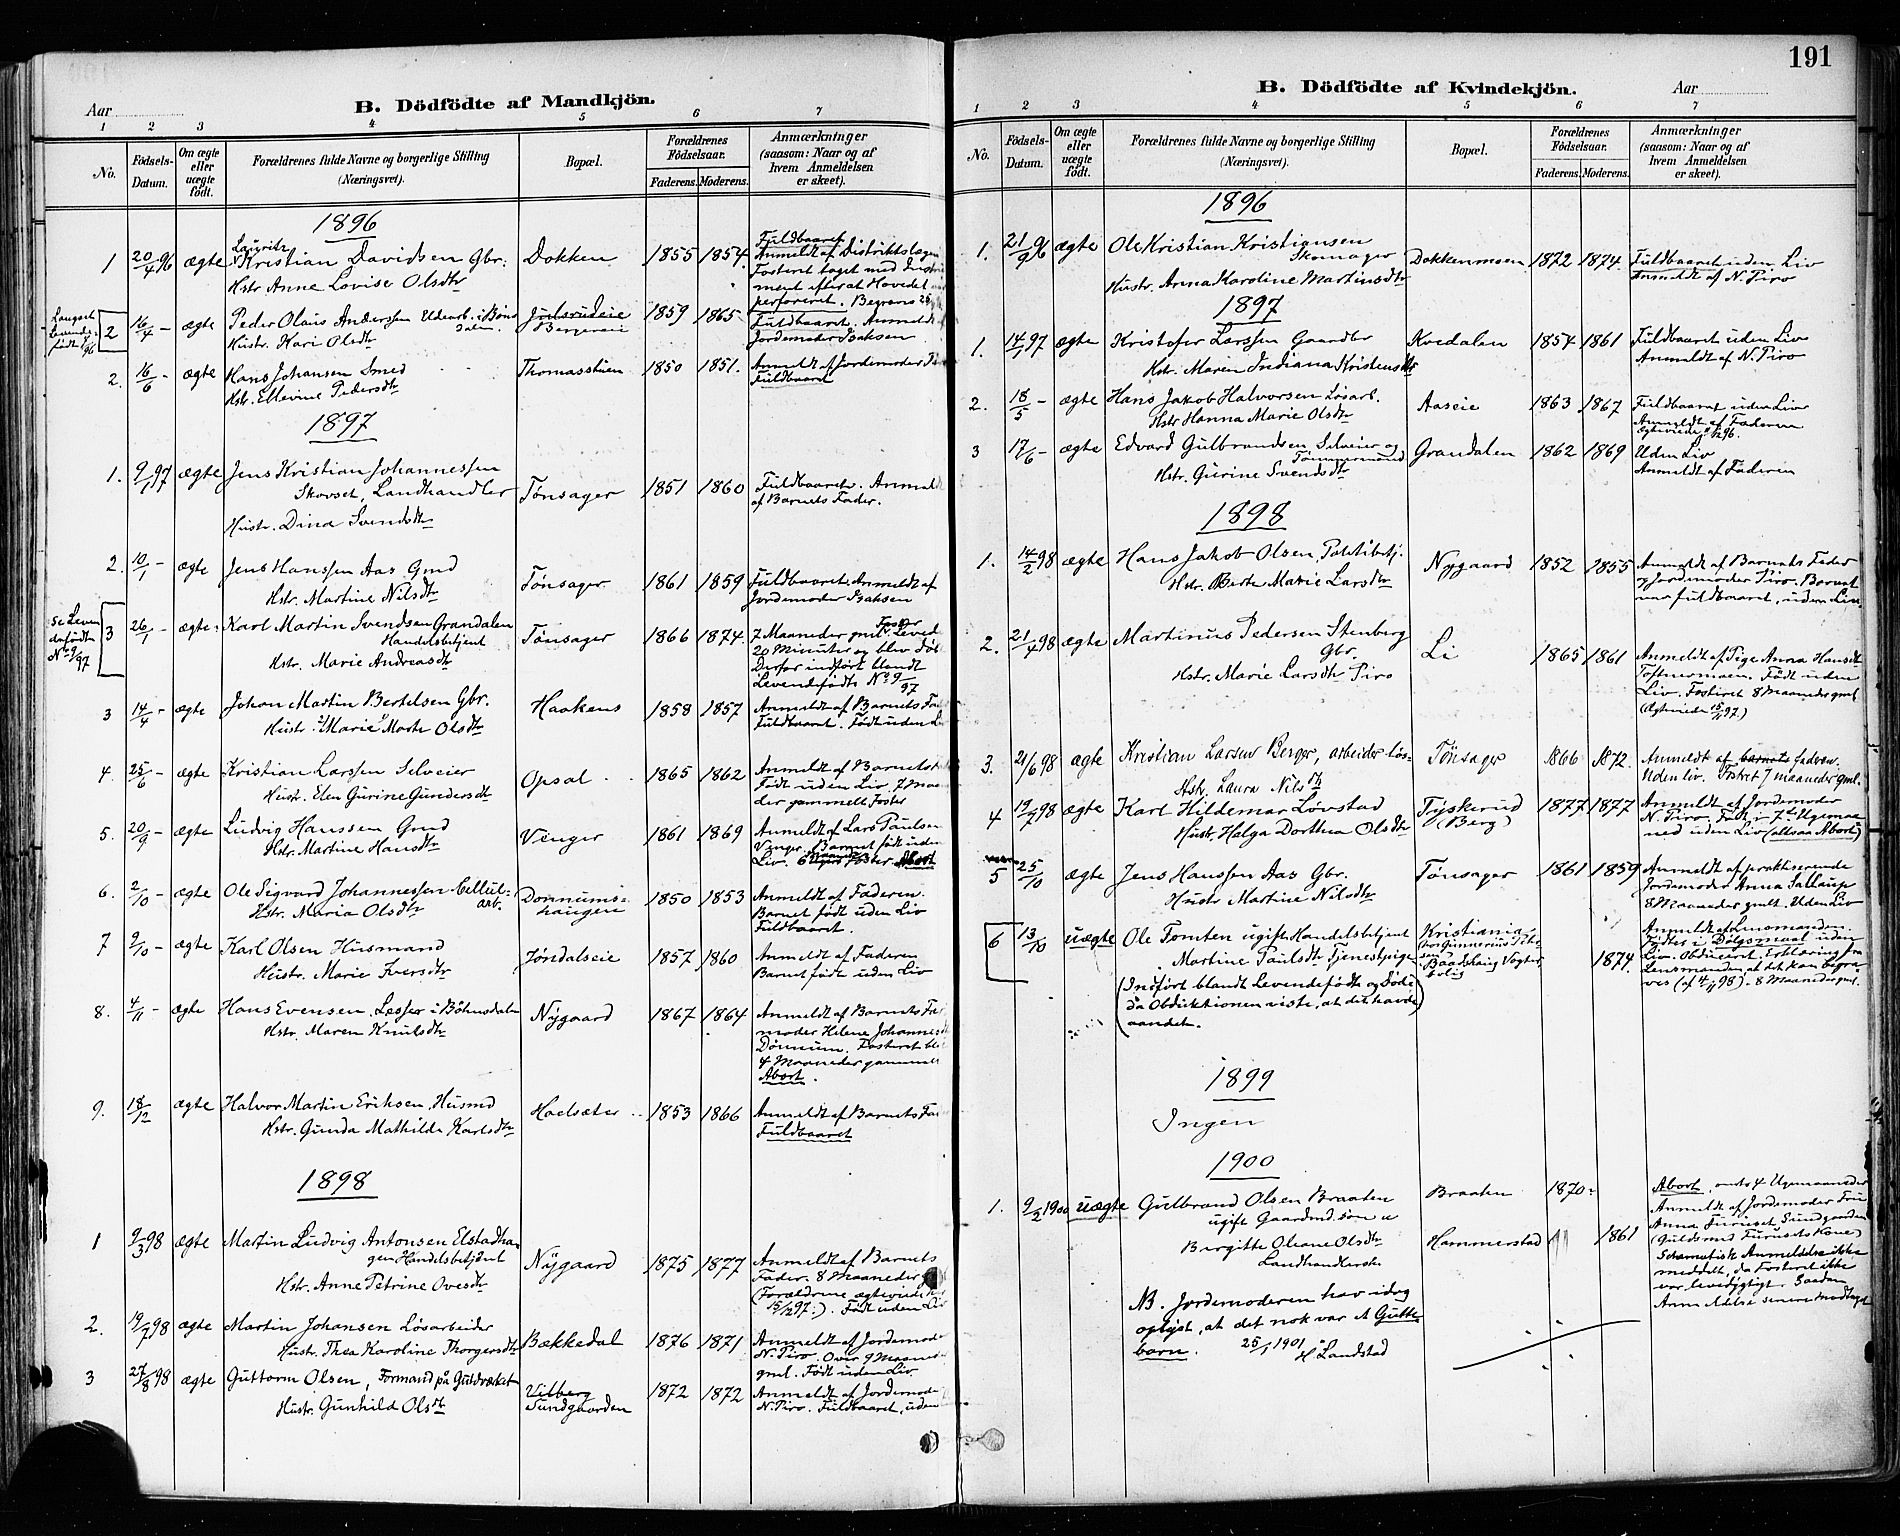 191
Aar
B. Dödfödte af Mandkjön.
1 2 3 4 5 6 7
No.
Födsels-Datum.
Om ægte eller uægte födt.
Forældrenes fulde Navne og borgerlige Stilling (Næringsvei).
Bopæl.
Forældrenes Födselsaar.
Faderens. Moderens.
Anmærkninger (saasom: Naar og af hvem Anmeldelsen er skeet).
1896
1 20/4 96 ægte Lauritz Kristian Davidsen Gbr. Dokken 1855 1854 Fuldbaaret
Hstr. Anne Lovise Olsdtr Anmeldt af Distriktslægen
Fosteret taget med Instru-
ment efter at Hovedet
perforeret.
2 16/4 - ægte Peder Olaus Anderssen 1859 1865 Fuldbaaret. Anmeldt
Hustr. Kari Olsdtr Jordemoder Isaksen
2. 16/6 - ægte Hans Johansen Smed Thomasstuen 1850 1851. Anmeldt af Jordemoder
Hstr. Ellevine Pedersdtr Fuldbaaret
1897
1. 9/1 97 ægte Jens Kristian Johannessen
Skovset, Landhandler Tønsager 1851 1860 Fuldbaaret. Anmeldt
Hustr. Dina Svendsdtr af Barnets Fader.
2. 10/1 - ægte Jens Hanssen Aas Gmd Tønsager 1861 1859 Fuldbaaret. Anmeldt af
Hstr. Martine Nilsdtr Jordemoder Isaksen
Se Leven
defødte
No 9/97
3 26/1 - ægte Karl Martin Svendsen Grandalen
Handelsbetjent Tønsager 1866 1874. 7 Maaneder gml. Foster Levede
Hstr. Marie Andreasdtr 20 Minuter og blev døbt
Derfor indført blandt
Levendefødte No 9/97
3 14/4 - ægte Johan Martin Bertelsen Gbr. Haakens 1858 1857 Anmeldt af Barnets Fader
Hustr. Marie Marte Olsdtr Fuldbaaret. Født uden Liv
4. 25/6 - ægte Kristian Larssen Selveier Opsal 1865 1862 Anmeldt af Barnets
Hustr. Elen Gurine Gundersdtr Født uden Liv. 7 Maa-
der gammelt Foster
5. 20/9 - ægte Ludvig Hanssen Gmd Venger 1861 1869 Anmeldt af Lars Paulsen
Hstr. Martine Hansdtr Venger. Barnet født uden
Liv. 6 Maaneder Foster Abort
6. 2/10 - ægte Ole Sigvard Johannessen Cellul-arb. Donnums-haugen 1850 1853 Anmeldt af Faderen.
Hstr. Maria Olsdtr Barnet født uden Liv
Fuldbaaret.
7 9/10 - ægte Karl Olsen Husmand Jøndalseie 1857 1860 Anmeldt af Faderen
Hustr. Marie Iversdtr Barnet født uden Liv
8. 4/11 - ægte Hans Evensen, Lesser i Böhnsdalen Nygaard 1867 1864 Anmeldt af Barnets Far-
Hstr. Maren Knutsdtr moder Helene Johannesdtr
Dønnum. Fosteret blev
4 Maaneder gammel
Abort.
9. 18/12 ægte Halvor Martin Eriksen, Husmd Hoelsæter 1853 1866 Anmeldt af Barnets Fader
Hstr. Gunda Mathilde Karlsdtr Fuldbaaret
1898
1 9/3 98 ægte Martin Ludvig Antonsen Elstadha-
gen Handelsbetjent Nygaard 1875 1877 Anmeldt af Barnets
Hstr. Anne Petrine Ovesdtr Fader. 8 Maaneder
(Forældrene ægteviede
15/12 97.). Født uden Liv
2. 19/7 98 ægte Martin Johansen Løsarbeider Bækkedal 1876 1871 Anmeldt af Jordemoder
Hustr. Thea Karoline Thorgersdtr N. Piro. Over 9 Maaneder
gml. Født uden Liv.
3 27/8 98 ægte Guttorm Olsen, Formand på Guldværket Vilberg 1872 1872 Anmeldt af Jordemoder
Hustr. Gunhild Olsdtr Sundgaarden N. Piro. Fuldbaaret, uden
B. Dödfödte af Kvindekjön.
Aar
1 2 3 4 5 6 7
No.
Födsels-Datum.
Om ægte eller uægte födt.
Forældrenes fulde Navne og borgerlige Stilling (Næringsvei).
Bopæl.
Forældrenes Födselsaar.
Faderens. Moderens.
Anmærkninger (saasom: Naar og af hvem Anmeldelsen er skeet).
1896
1. 21/9 96 ægte Ole Kristian Kristiansen
Skomager Dokkenmoen 1872 1874. Fuldbaaret uden Liv
Hustr. Anna Karoline Martinsdtr Anmeldt af N. Piro
1897
1. 14/1 97 ægte Kristofer Larssen Gaardbr Kvedalen 1854 1861 Fuldbaaret uden Liv
Hstr. Maren Indiana Kristensdtr Anmeldt af N. Piro
2. 18/5 - ægte Hans Jakob Halvorsen Løsarb. Aaseie 1863 1867 Fuldbaaret uden Liv
Hstr Hanna Marie Olsdtr Anmeldt af Faderen
3 17/6 - ægte Edvard Gulbrandsen Selveier og
Tømmermand Grandalen 1862 1869 Uden Liv
Hstr. Gurine Svendsdtr Anmeldt af Faderen
1898
1. 14/2 98 ægte Hans Jakob Olsen, Politibetj. Nygaard 1852 1855 Anmeldt af Barnets Fader
Hstr. Berte Marie Larsdtr og Jordemoder Piro. Barnet
var fuldbaaret, uden Liv
2. 21/4 98 ægte Martinus Pedersen Stenberg
Gbr. Li 1865 1861 Anmeldt af Pige Anna Hansdtr
Hstr. Marie Larsdtr Piro Toftnermoen. Født uden
Liv. Fosteret 8 Maaneder gml
(Ægteviede 15/11 97.)
3. 21/6 98 ægte Kristian Larsen Berger, arbeider løs- Tönsager 1866 1872. Anmeldt af barnets faderen.
Hstr. Laura Nilsdtr Uden liv. Fostret 7 maaneder gml.
4 19/7 98 ægte Karl Hildemar Løvstad Tyskerud 1877 1877 Anmeldt af Jordemoder
Hustr. Helga Dorthea Olsdtr (Berg) N. Piro. Født i 7de Ugemaa-
ned uden Liv (altsaa Abort)
5 25/10 ægte Jens Hanssen Aas Gbr. Tønsager 1861 1859 Anmeldt af praktiserende
Hustr Martine Nilsdtr Jordemoder Anna
8 Maaneder gmlt. Uden Liv
6 13/10 uægte Ole Tomten ugift Handelsbetjent Kristiania
Martine Paulsdtr Tjenestpige 1874. Anmeldt af Lensmanden.
Fødtes i Dølgsmaal uden
Liv. Obduceret. Erklæring fra
Lensmanden, at det kan begra-
ves (af 4/11 98) - 8 Maaneder gml.
(Indført blandt Levendefødte og Døde
da Obduktionen viste, at det havde
aandet.
1899
Ingen
1900
1. 9/2 1900 uægte Gulbrand Olsen Braaten Braaten 1870 Abort, omtr 4 Ugemaaneder
ugift Gaardmd. søn u Anmeldt af Jordemoder Fru
Birgitte Oleane Olsdtr Hammerstad 1861 Anna Furuset Sundgaarden
Landhandlersk (Guldsmed Furusets Kone)
Schematisk Anmeldelse ikke
meddelt, da Fosteret ikke
var levedygtigt. Saadan
Anmeldelse senere modtaget
NB. Jordemoderen har idag
oplyst, at det nok var et Gutte-
barn. 25/1 1901 H Landstad